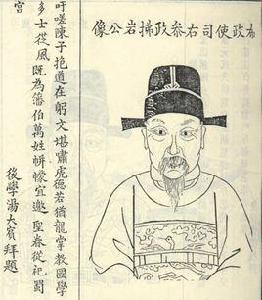 布政使司右参政掃岩公像
吁嗟陳子抱道在躬文堪嘯虎德若猶龍掌教國學
多士從風既為藩伯萬姓帡幪宜邀聖眷從祀蜀
宮
後學湯大賓拜題